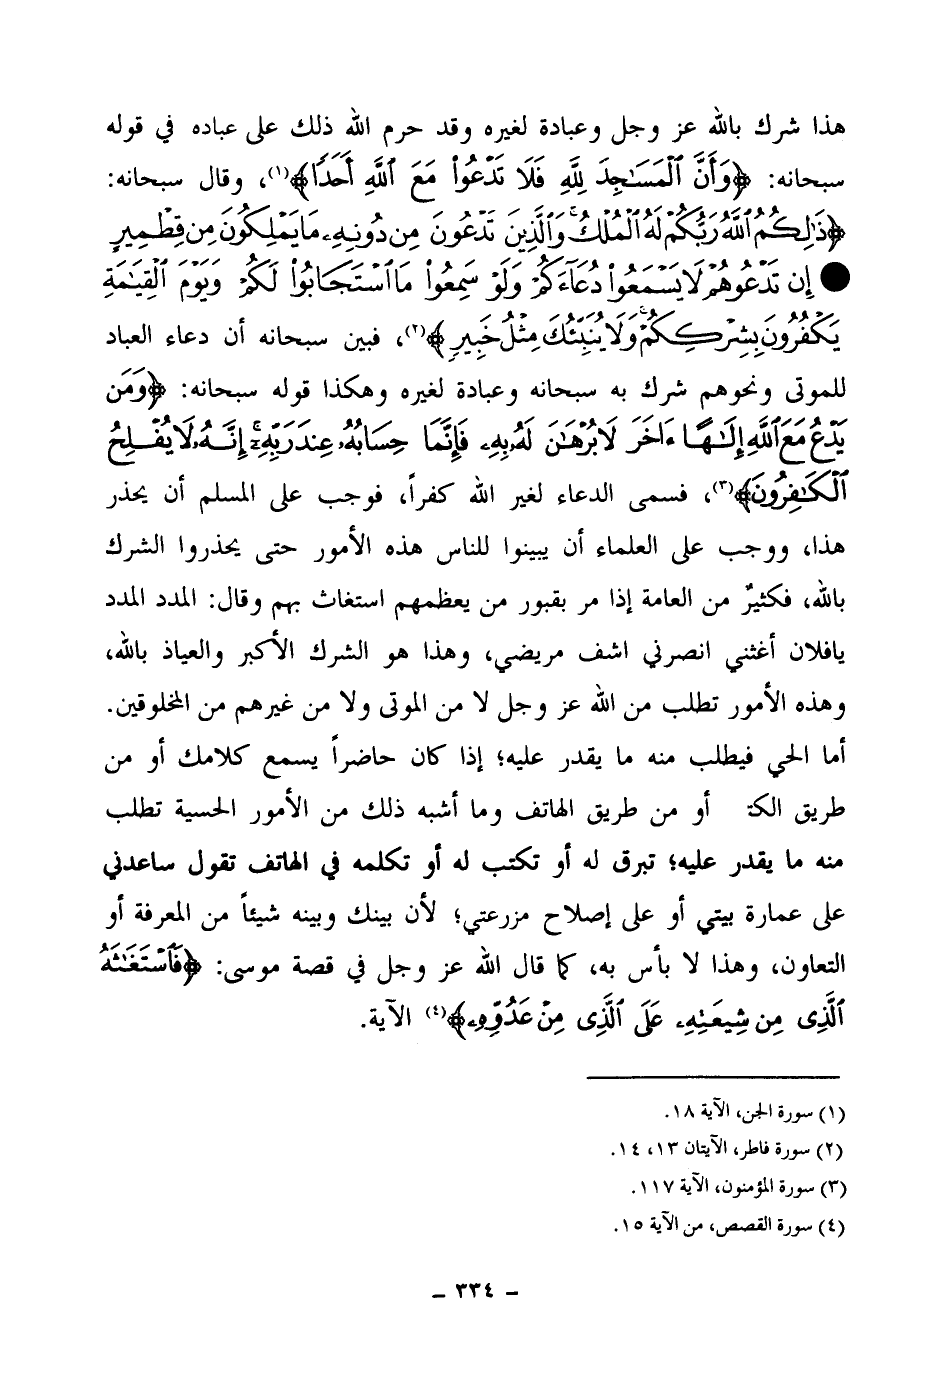 هذا شرك بالله عز وجل وعبادة لغيره وقد حرم الله ذلك على عباده في قوله
سبحانه: ﴿وَأَنَّ ٱلْمَسَٰجِدَ لِلَّهِ فَلَا تَدْعُوا۟ مَعَ ٱللَّهِ أَحَدًا﴾(١)، وقال سبحانه:
﴿ذَٰلِكُمُ ٱللَّهُ رَبُّكُمْ لَهُ ٱلْمُلْكُ ۚ وَٱلَّذِينَ تَدْعُونَ مِن دُونِهِۦ مَا يَمْلِكُونَ مِن قِطْمِيرٍ
● إِن تَدْعُوهُمْ لَا يَسْمَعُوا۟ دُعَآءَكُمْ وَلَوْ سَمِعُوا۟ مَا ٱسْتَجَابُوا۟ لَكُمْ ۖ وَيَوْمَ ٱلْقِيَٰمَةِ
يَكْفُرُونَ بِشِرْكِكُمْ ۚ وَلَا يُنَبِّئُكَ مِثْلُ خَبِيرٍ﴾(٢)، فبين سبحانه أن دعاء العباد
للموتى ونحوهم شرك به سبحانه وعبادة لغيره وهكذا قوله سبحانه: ﴿وَمَن
يَدْعُ مَعَ ٱللَّهِ إِلَٰهًا ءَاخَرَ لَا بُرْهَٰنَ لَهُۥ بِهِۦ فَإِنَّمَا حِسَابُهُۥ عِندَ رَبِّهِۦٓ ۚ إِنَّهُۥ لَا يُفْلِحُ
ٱلْكَٰفِرُونَ﴾(٣)، فسمى الدعاء لغير الله كفراً، فوجب على المسلم أن يحذر
هذا، ووجب على العلماء أن يبينوا للناس هذه الأمور حتى يحذروا الشرك
بالله، فكثيرٌ من العامة إذا مر بقبور من يعظمهم استغاث بهم وقال: المدد المدد
يافلان أغثني انصرني اشف مريضي، وهذا هو الشرك الأكبر والعياذ بالله،
وهذه الأمور تطلب من الله عز وجل لا من الموتى ولا من غيرهم من المخلوقين.
أما الحي فيطلب منه ما يقدر عليه؛ إذا كان حاضراً يسمع كلامك أو من
طريق أو من طريق الهاتف وما أشبه ذلك من الأمور الحسية تطلب
منه ما يقدر عليه؛ تبرق له أو تكتب له أو تكلمه في الهاتف تقول ساعدني
على عمارة بيتي أو على إصلاح مزرعتي؛ لأن بينك وبينه شيئاً من المعرفة أو
التعاون، وهذا لا بأس به، كما قال الله عز وجل في قصة موسى: ﴿فَٱسْتَغَٰثَهُ
ٱلَّذِى مِن شِيعَتِهِۦ عَلَى ٱلَّذِى مِنْ عَدُوِّهِۦ﴾(٤) الآية.
(١) سورة الجن، الآية ١٨.
(٢) سورة فاطر، الآيتان ١٣، ١٤.
(٣) سورة المؤمنون، الآية ١١٧.
(٤) سورة القصص، من الآية ١٥.
- ٣٣٤ -